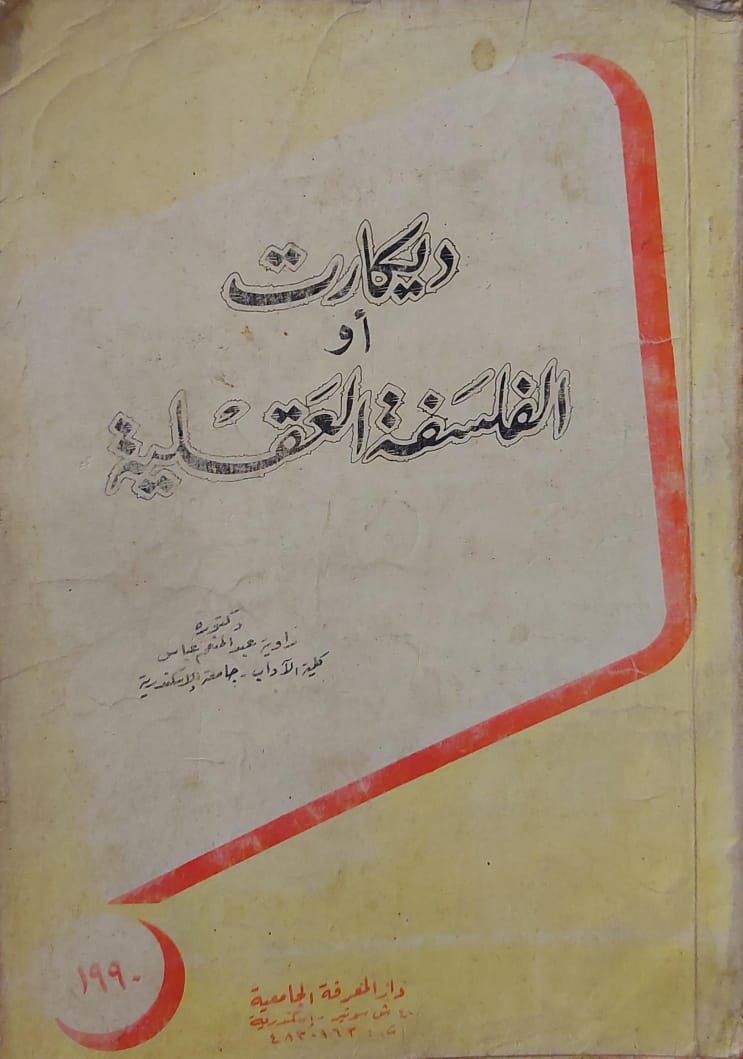 ديكارت
أو
الفلسَفة العَقْلية
دكتوره
راوية عبد المنعم عباس
كلية الآداب - جامعة الإسكندرية
١٩٩٠
دار المعرفة الجامعية
٤٠ ش سوتير - إسكندرية
ت: ٤٨٣٠١٦٣